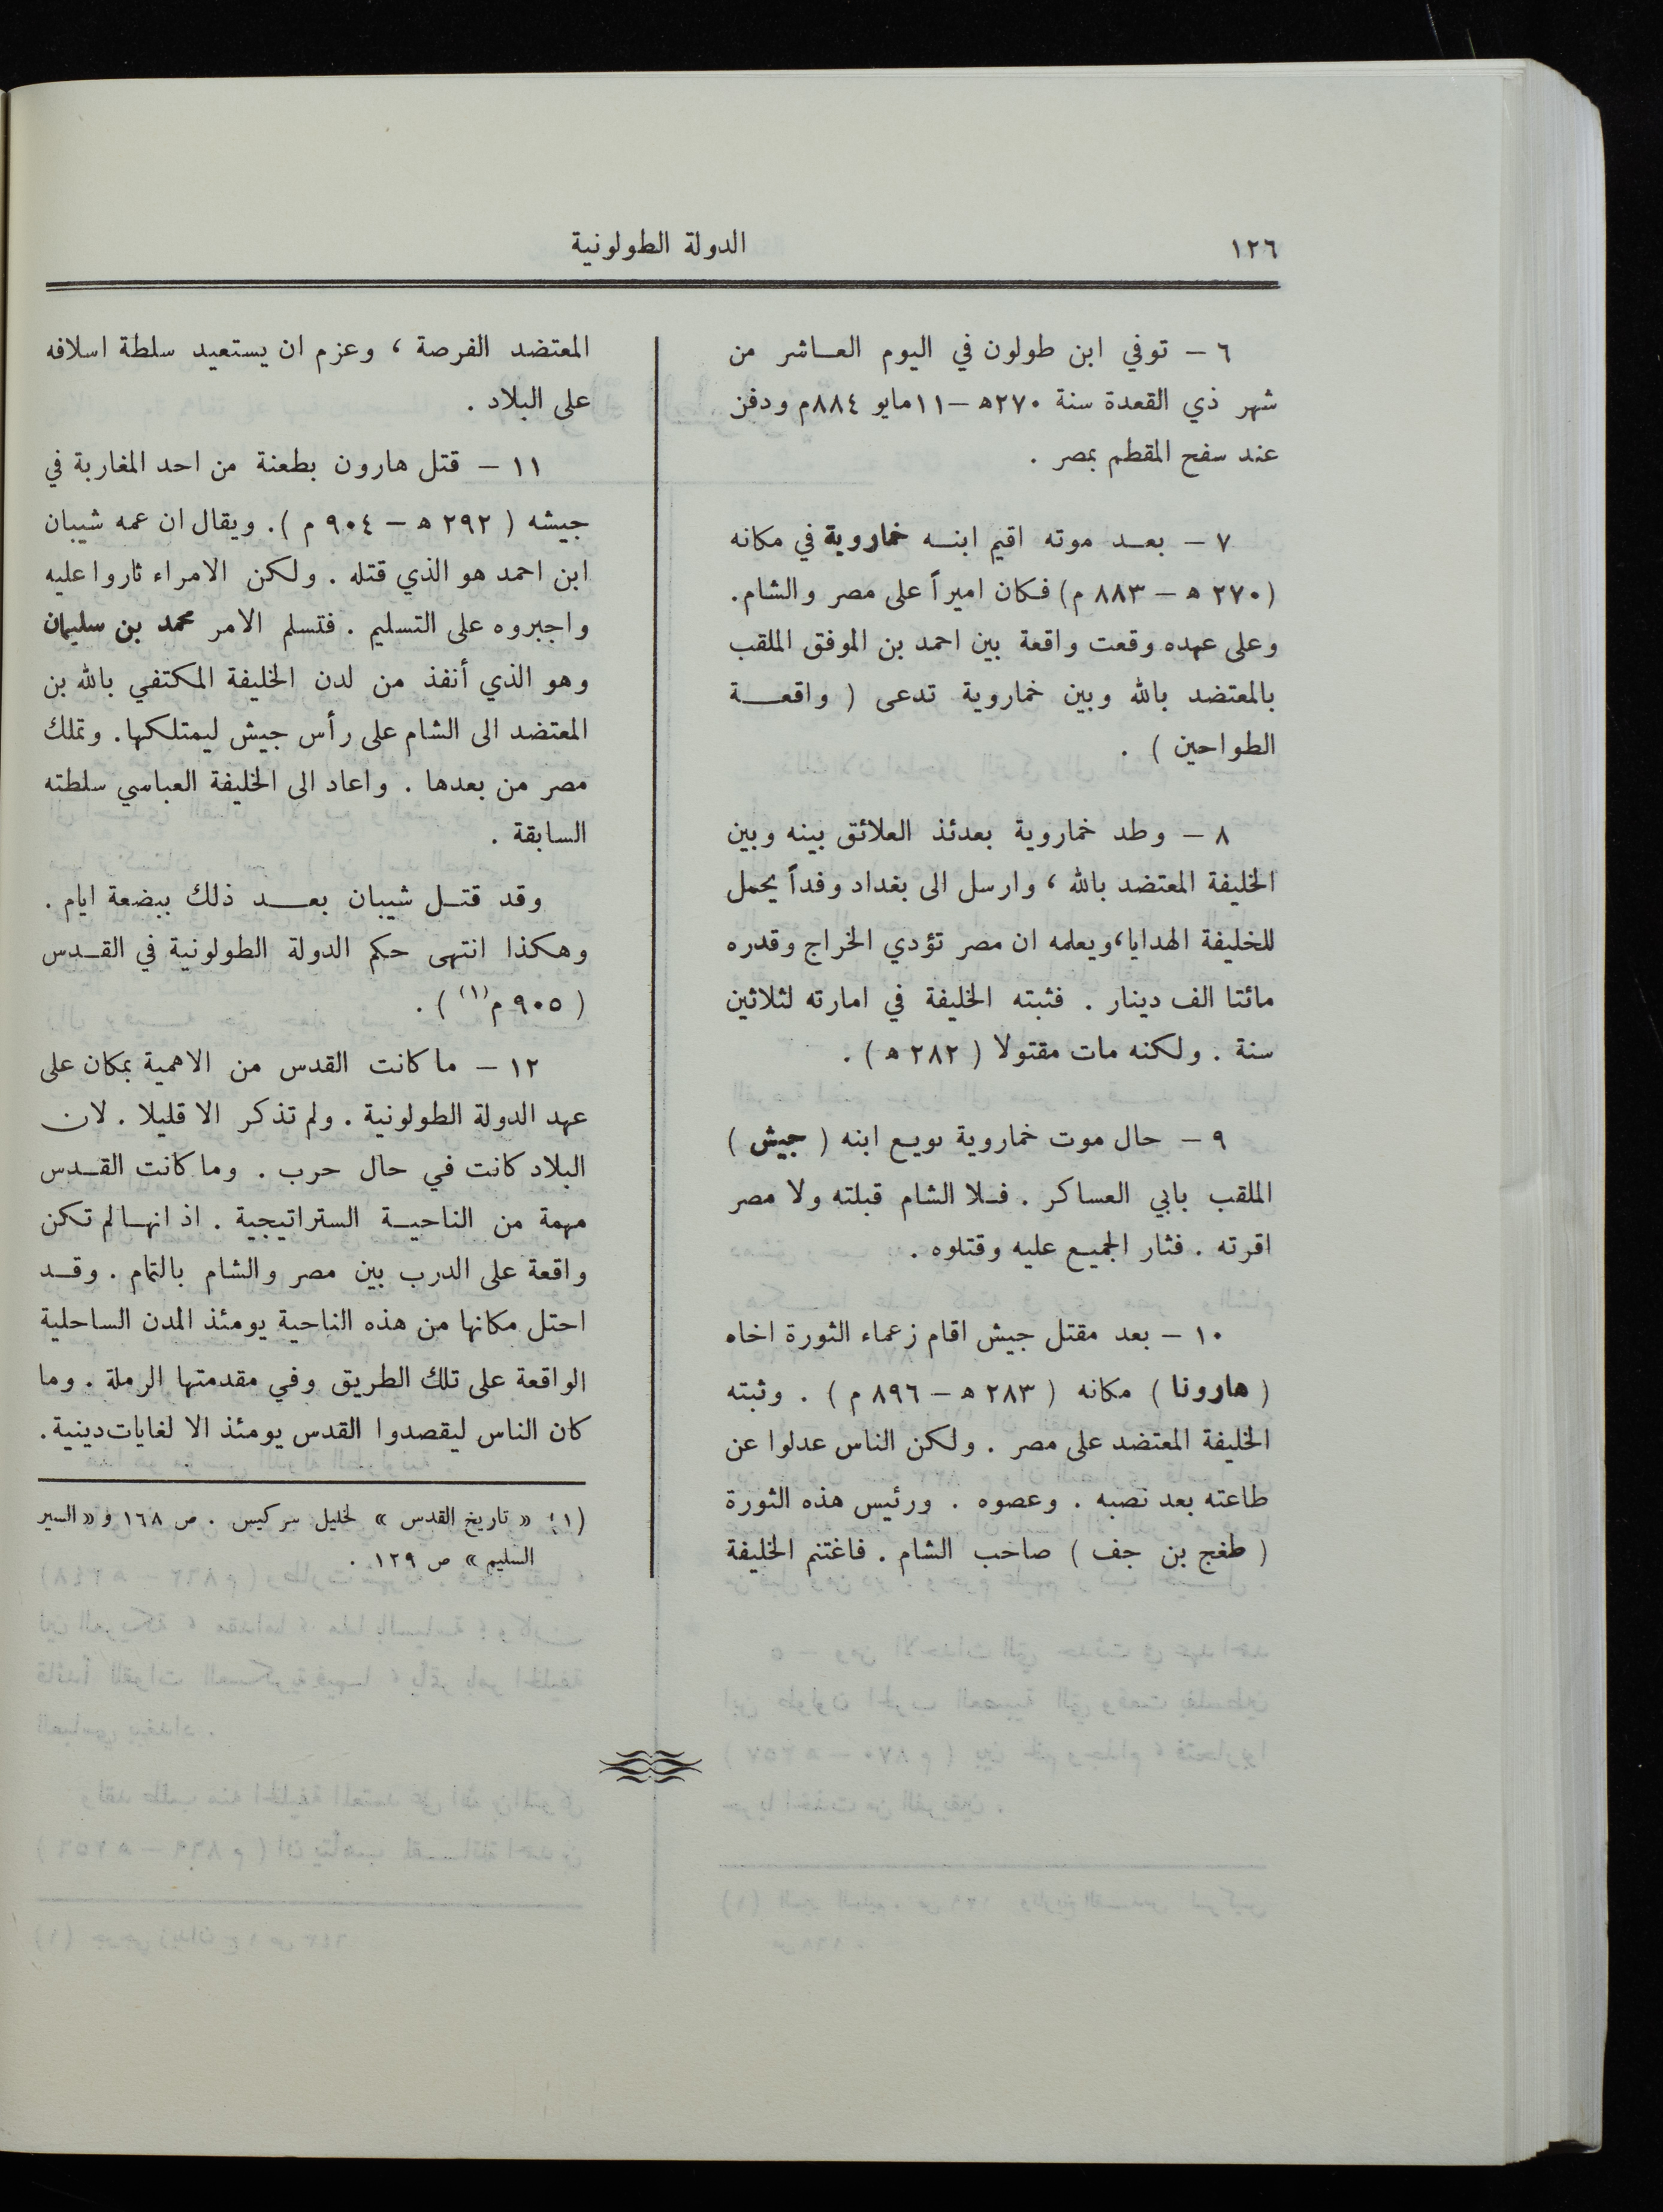 ١٢٦
الدولة الطولونية
٦ – توفي ابن طولون في اليوم العاشر من
شهر ذي القعدة سنة ٢٧٠ه – ١١ مايو ٨٨٤م ودفن
عند سفح المقطم بمصر .
٧ – بعد موته اقيم ابنه خماروية في مكانه
(٢٧٠ ه – ٨٨٣ م) فكان اميراً على مصر والشام.
وعلى عهده وقعت واقعة بين احمد بن الموفق الملقب
بالمعتضد بالله وبين خماروية تدعى ( واقعة
الطواحين ) .
٨ – وطد خماروية بعدئذ العلائق بينه وبين
الخليفة المعتضد بالله ، وارسل الى بغداد وفداً يحمل
للخليفة الهدايا، ويعلمه ان مصر تؤدي الخراج وقدره
مائتا الف دينار . فثبته الخليفة في امارته لثلاثين
سنة . ولكنه مات مقتولا ( ٢٨٢ ه ) .
٩ – حال موت خماروية بويع ابنه ( جيش )
الملقب بابي العساكر . فلا الشام قبلته ولا مصر
اقرته . فثار الجميع عليه وقتلوه .
١٠ – بعد مقتل جيش اقام زعماء الثورة اخاه
( هارونا ) مكانه ( ٢٨٣ ه – ٨٩٦ م ) . وثبته
الخليفة المعتضد على مصر . ولكن الناس عدلوا عن
طاعته بعد نصبه . وعصوه . ورئيس هذه الثورة
( طفج بن جف ) صاحب الشام . فاغتنم الخليفة
المعتضد الفرصة ، وعزم ان يستعيد سلطة اسلافه
على البلاد .
١١ – قتل هارون بطعنة من احد المغاربة في
جيشه ( ٢٩٢ ه – ٩٠٤ م ). ويقال ان عمه شيبان
ابن احمد هو الذي قتله . ولكن الامراء ثاروا عليه
واجبروه على التسليم . فتسلم الامر محمد بن سليمان
وهو الذي أنفذ من لدن الخليفة المكتفي بالله بن
المعتضد الى الشام على رأس جيش ليمتلكها. وتملك
مصر من بعدها . واعاد الى الخليفة العباسي سلطته
السابقة .
وقد قتل شيبان بعد ذلك ببضعة ايام .
وهكذا انتهى حكم الدولة الطولونية في القدس
( ٩٠٥ م(١) ) .
١٢ – ما كانت القدس من الاهمية بمكان على
عهد الدولة الطولونية . ولم تذكر الا قليلا . لان
البلاد كانت في حال حرب . وما كانت القدس
مهمة من الناحية الستراتيجية . اذ انها لم تكن
واقعة على الدرب بين مصر والشام بالتمام . وقد
احتل مكانها من هذه الناحية يومئذ المدن الساحلية
الواقعة على تلك الطريق وفي مقدمتها الرملة . وما
كان الناس ليقصدوا القدس يومئذ الا لغايات دينية.
(١) « تاريخ القدس » لخليل سركيس . ص ١٦٨ و « السير
السليم » ص ١٢٩ .